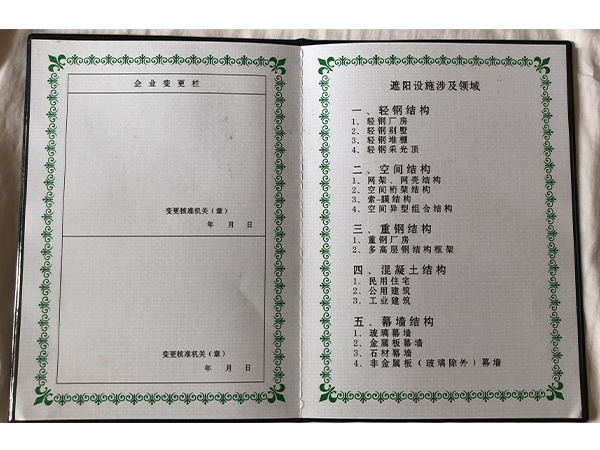 企业变更栏
变更核准机关（章）
年 月 日
变更核准机关（章）
年 月 日
遮阳设施涉及领域
一、轻钢结构
1、轻钢厂房
2、轻钢别墅
3、轻钢堆棚
4、轻钢采光顶
二、空间结构
1、网架、网壳结构
2、空间桁架结构
3、索-膜结构
4、空间异型组合结构
三、重钢结构
1、重钢厂房
2、多高层钢结构框架
四、混凝土结构
1、民用住宅
2、公用建筑
3、工业建筑
五、幕墙结构
1、玻璃幕墙
2、金属板幕墙
3、石材幕墙
4、非金属板（玻璃除外）幕墙